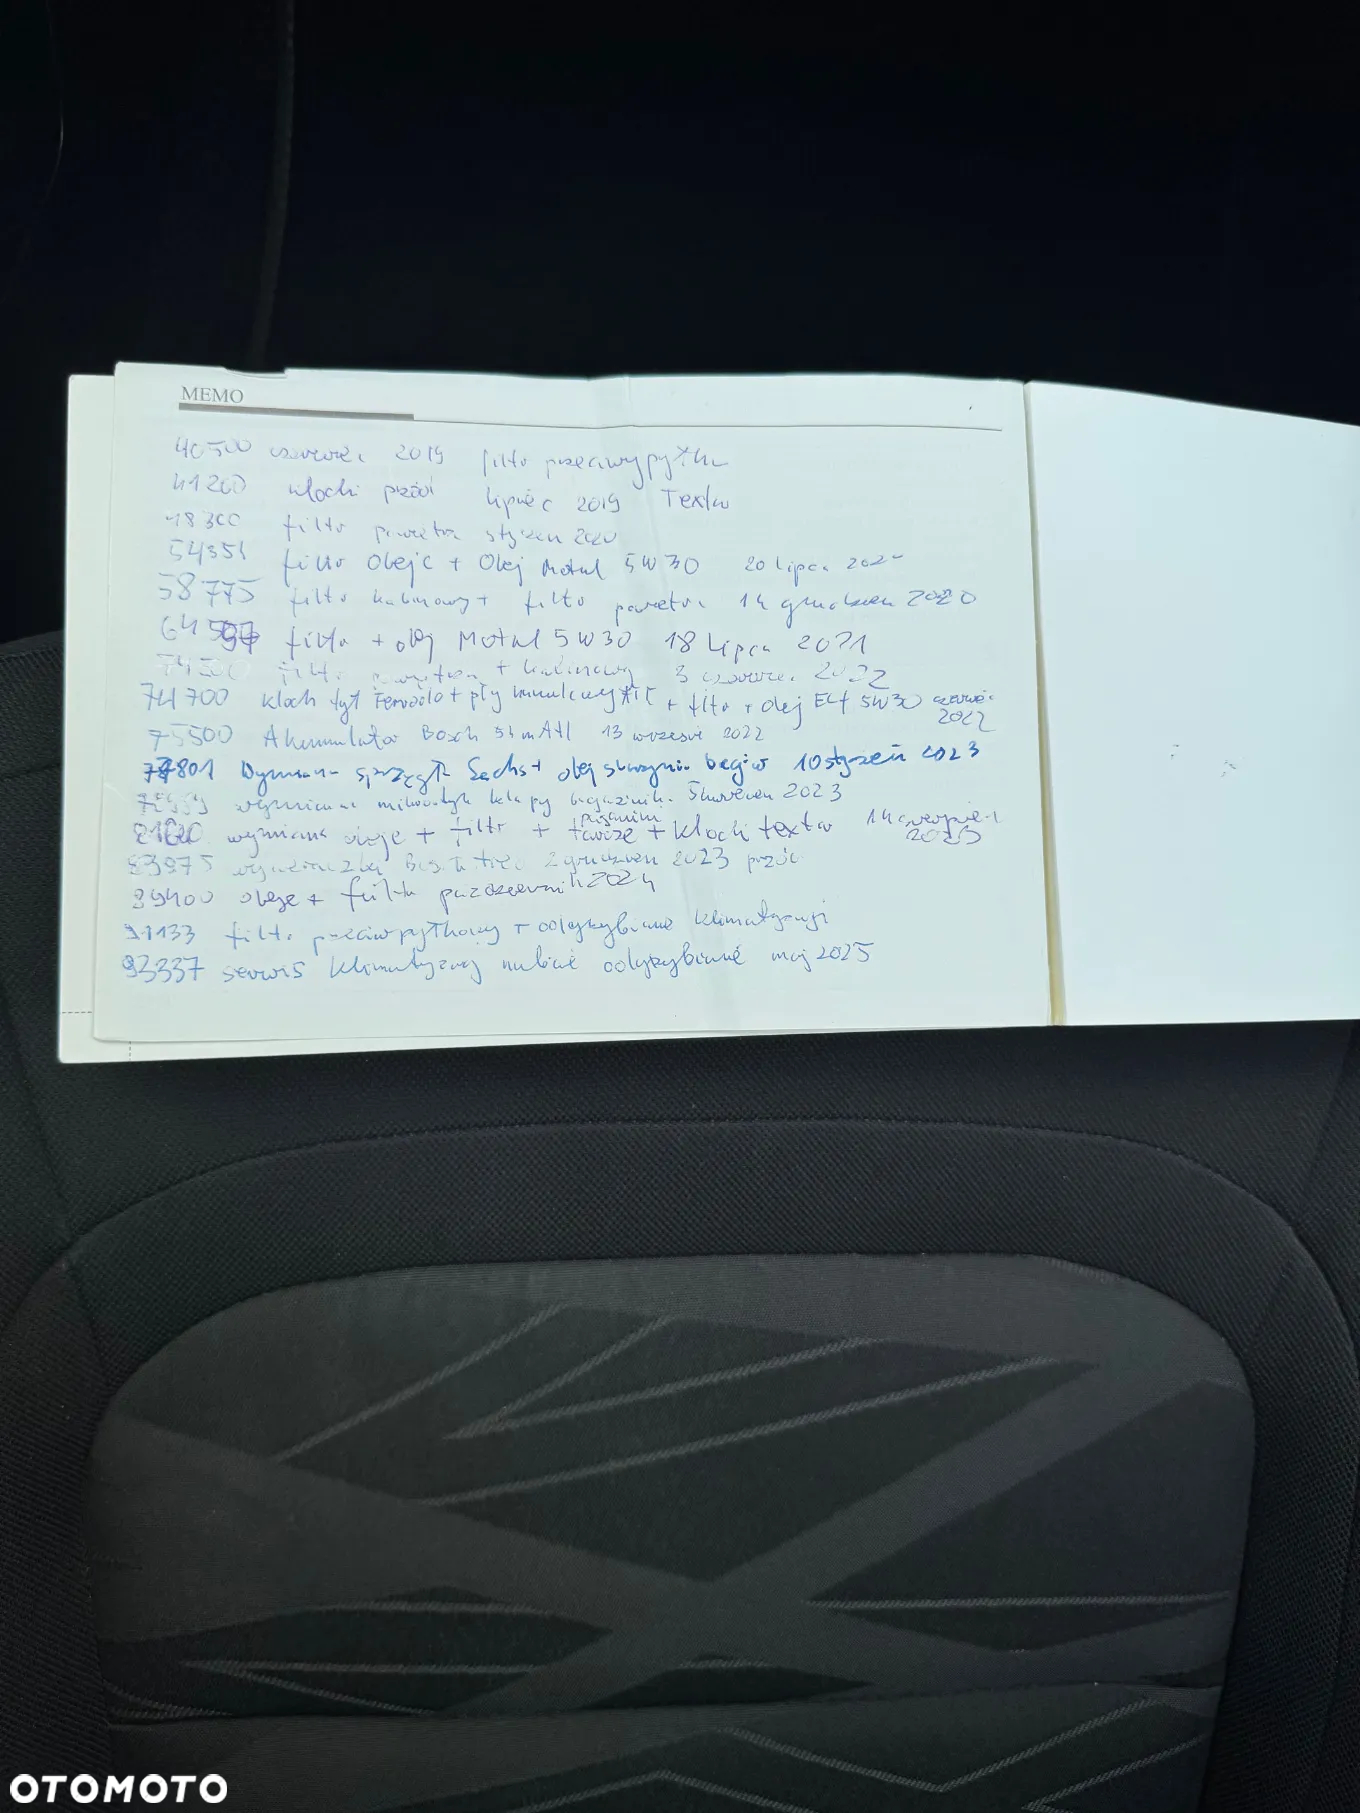 MEMO
40500 czerwiec 2019 filtr przeciwpyłku
41200 klocki przód lipiec 2019 Textar
48300 filtr powietrza styczeń 2020
54351 filtr Oleje + Olej Motul 5W30 20 lipca
58775 filtr kabinowy + filtr powietrza 14 grudzień 2020
filtr + olej Motul 5W30 18 Lipca 2021
74500 filtr powietrza + kabinowy 3 czerwiec 2022
74700 klocki tył Ferodo + płyn hamulcowy + filtr + olej Elf 5W30 czerwiec 2022
75500 Akumulator Bosch 54 mAH 13 wrzesień 2022
77801 Wymiana sprzęgła Sachs + olej skrzynia biegów 10 styczeń 2023
wymiana mikrostyk klapy bagażnika 5 czerwiec 2023
wymiana oleje + filtr + tarcze + klocki textar 14 sierpień 2023
83975 2 grudzień 2023 przód
89400 oleje + filtr październik 2024
91133 filtr przeciwpyłkowy + odgrzybianie klimatyzacji
93337 serwis klimatyzacji nabicie odgrzybianie maj 2025
OTOMOTO